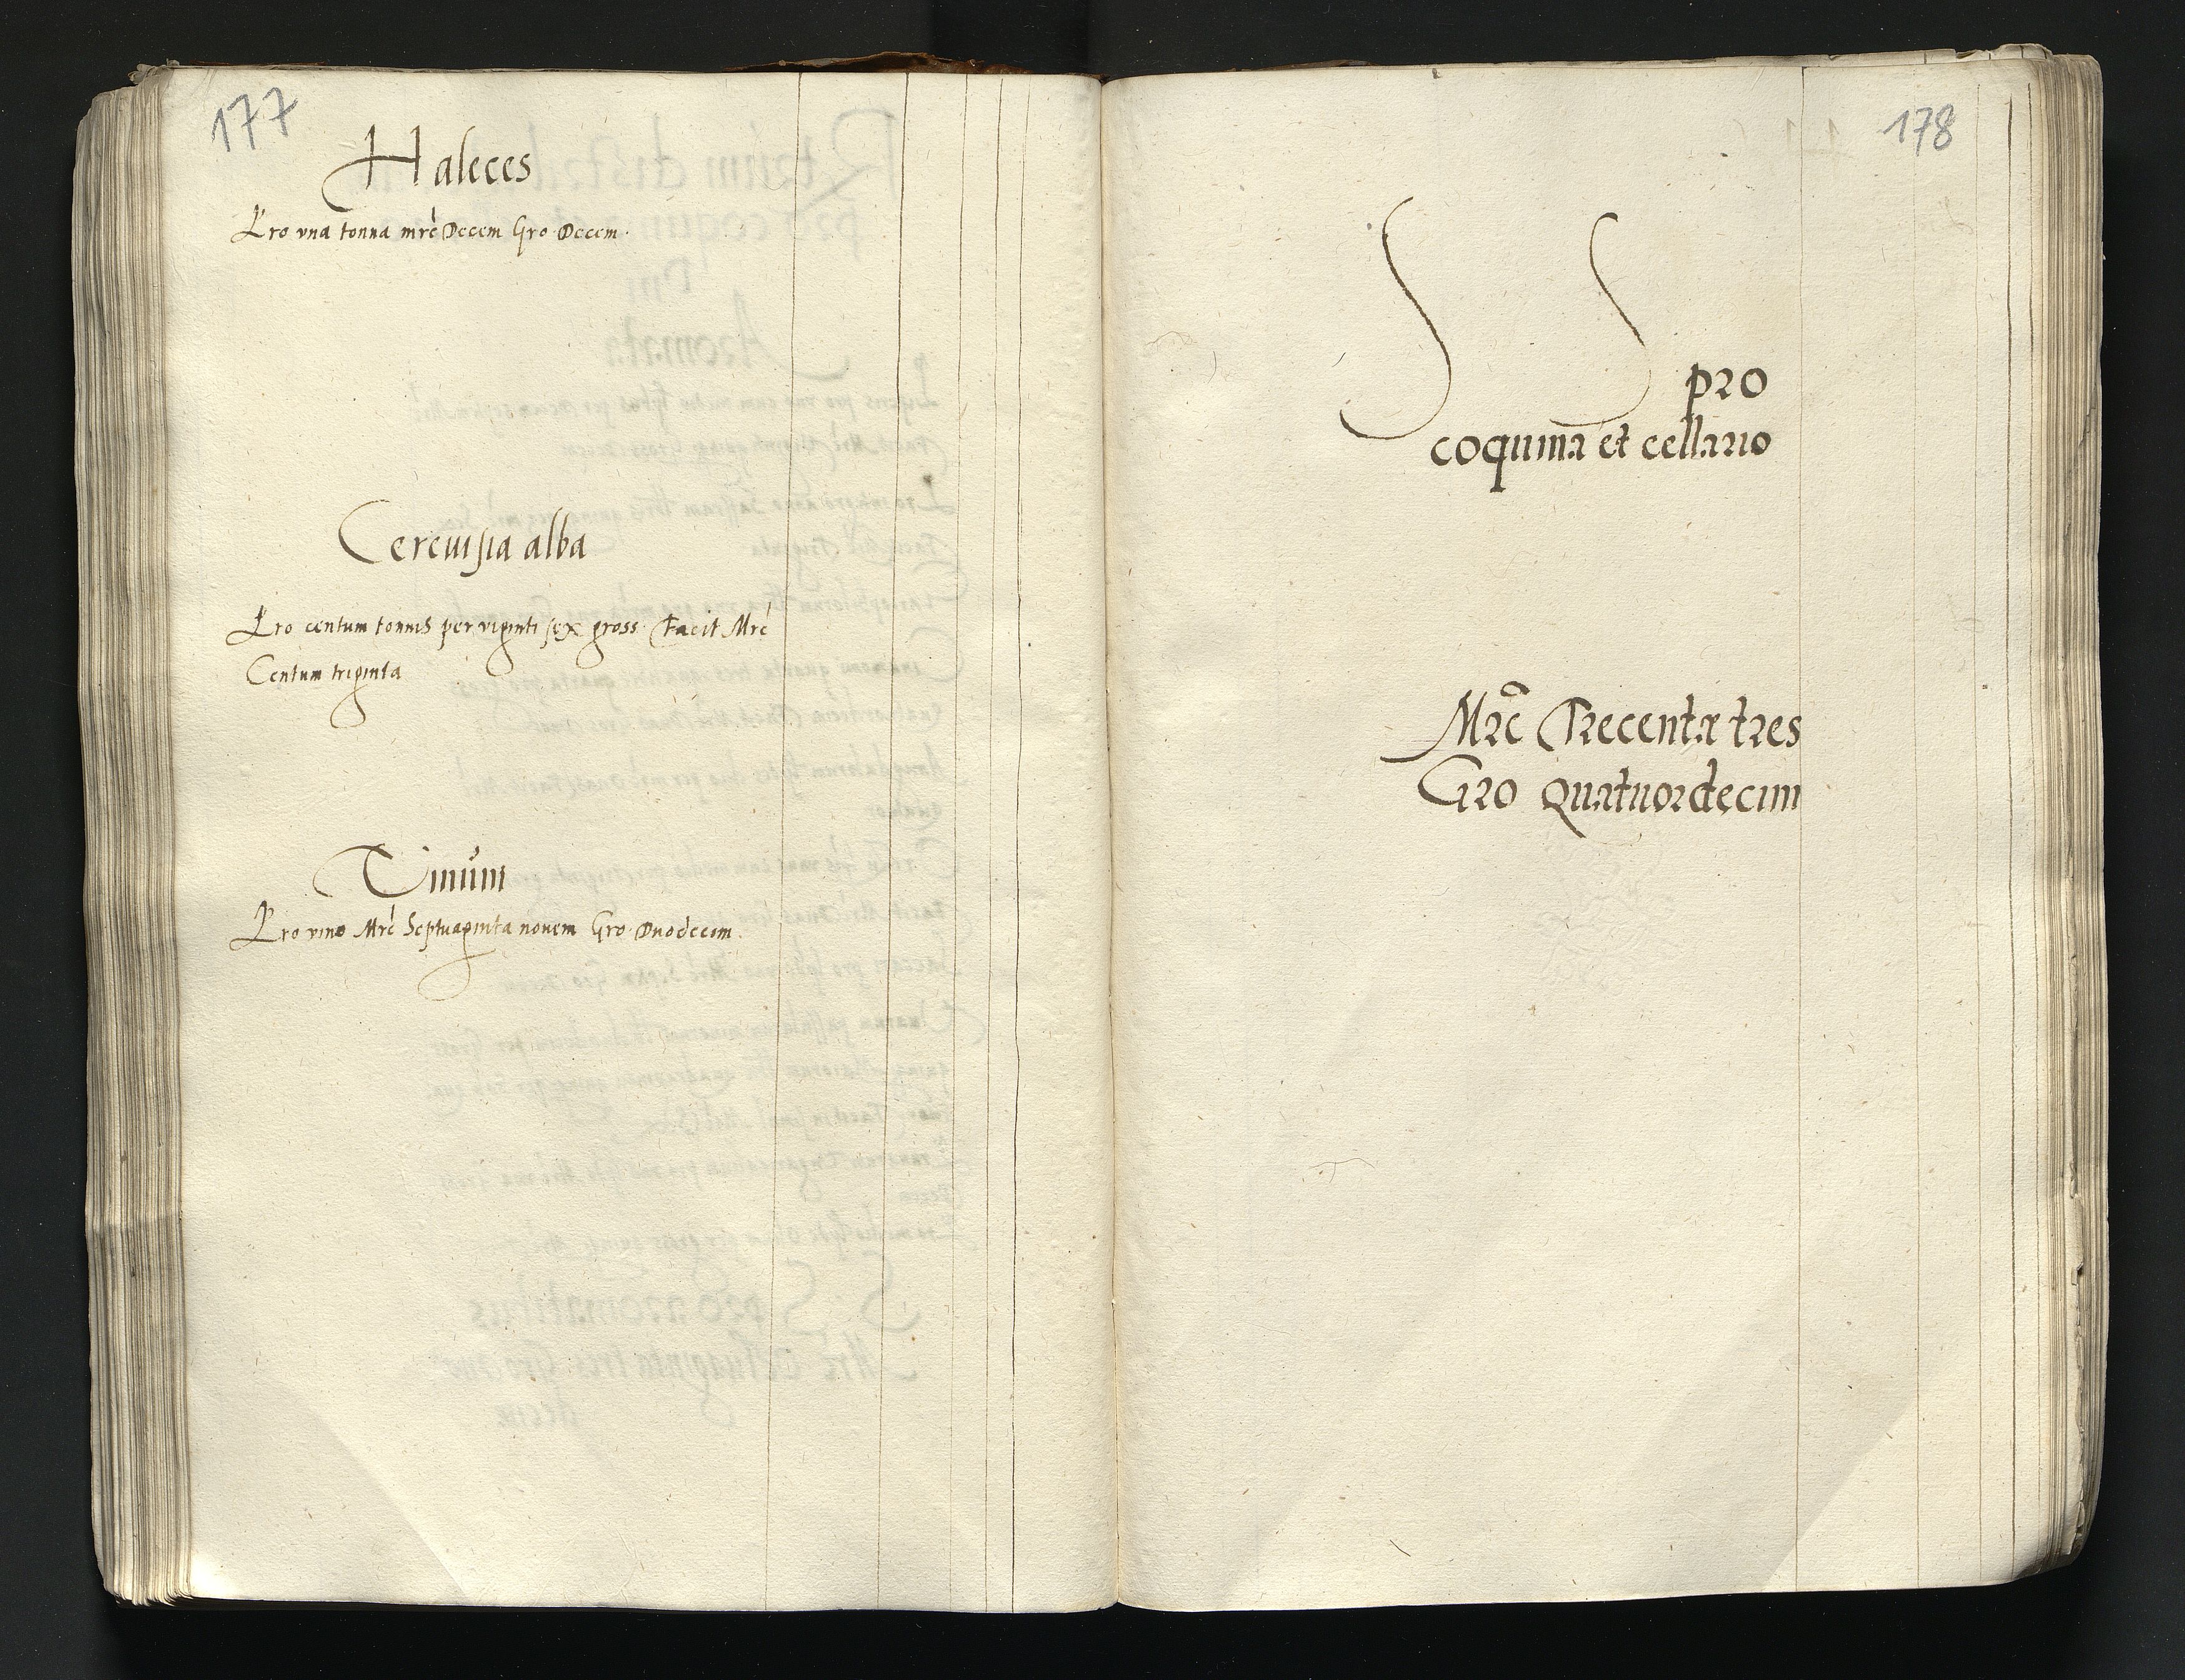 177
Haleces
Pro vna tonna mrc Decem Gro Decem.
Cereuisia alba
Pro centum tonnis per viginti sex gross. Facit Mrc
Centum triginta
Vinum
Pro vino Mrc Septuaginta nouem Gro. Duodecim.
178
S S pro
coquina et cellario
Mrc Trecenta tres
Gro quatuordecim